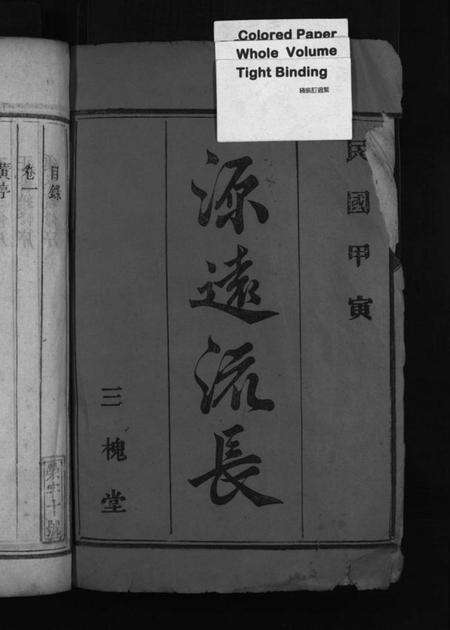 Colored Paper
Whole Volume
Tight Binding
民國甲寅
源遠流長
三槐堂
目錄
卷一